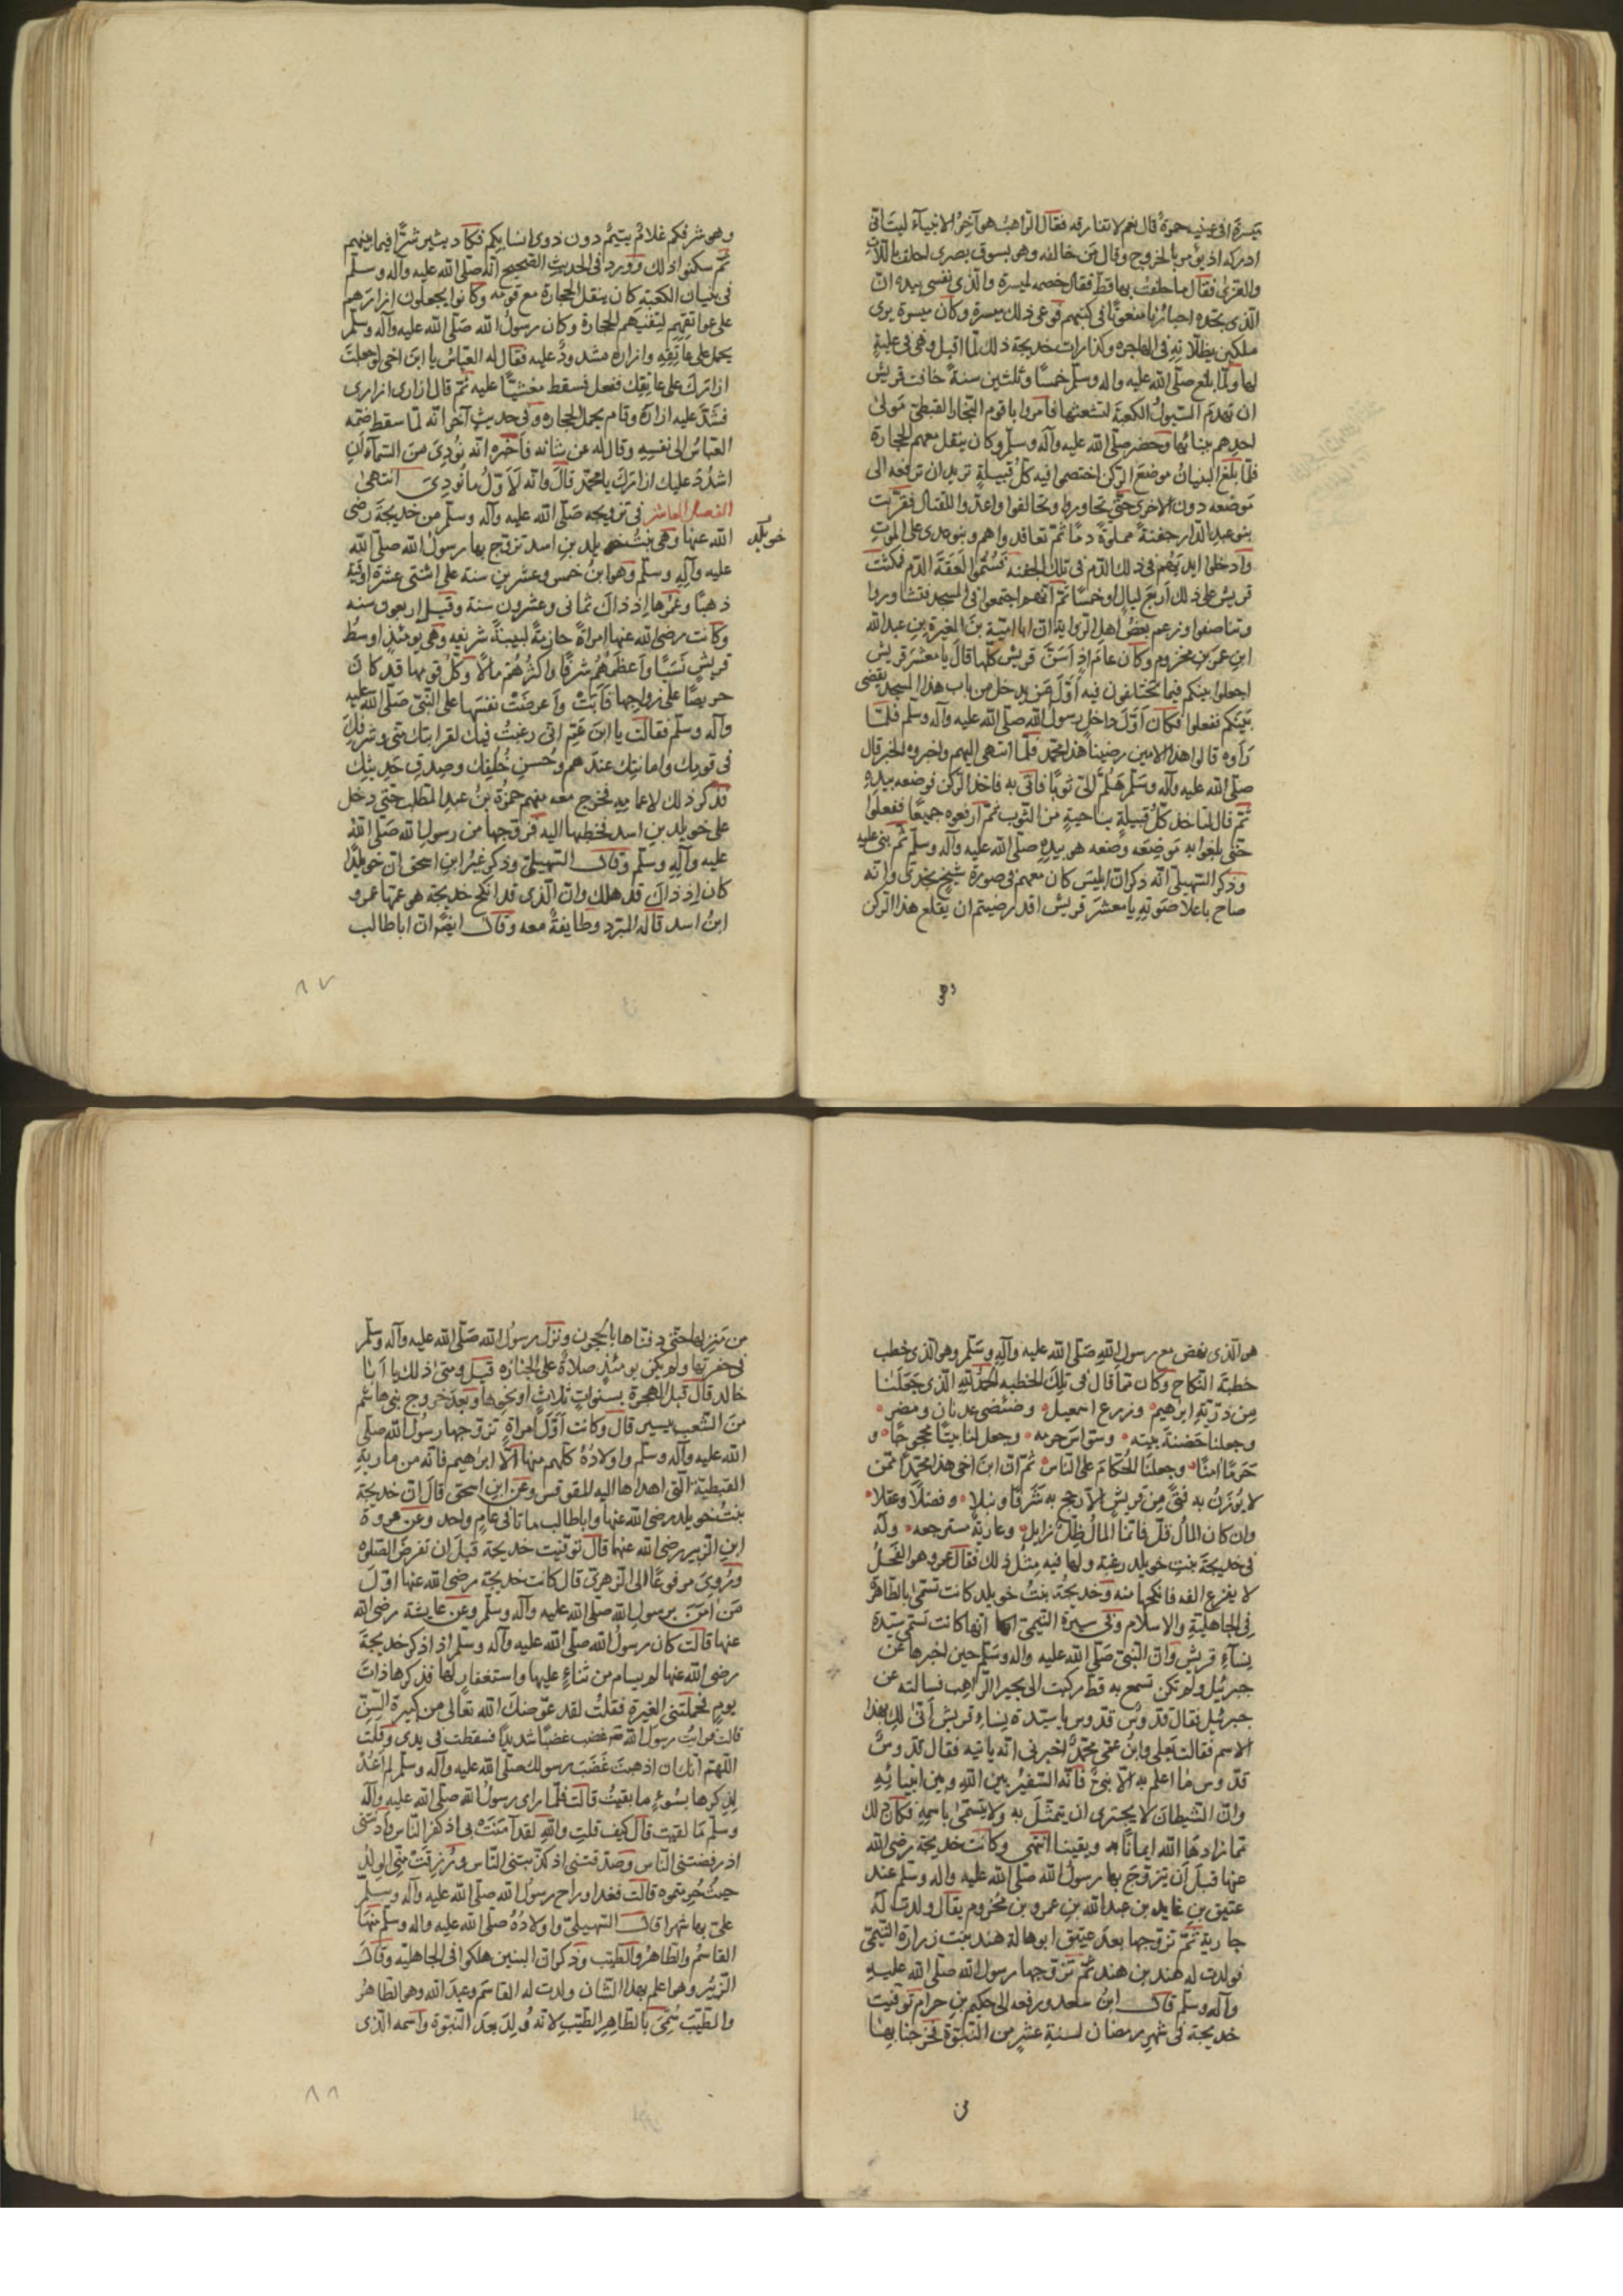 ميسرة افى عينيه حمرة قال نعم لا تفارقه فقال الراهب هو آخر الانبياء ليتانى
ادركه اذ يؤمر بالخروج وقال من خالفه وهو بسوق بصرى احلف باللات
والعزى فقال ما حلفت بهما قط فقال خصمه لميسرة والذى نفسى بيده ان
الذى يجده احبارنا منعوتا فى كتبهم فوعى ذلك ميسرة وكان ميسرة يرى
ملكين يظلانه فى الهاجره وكذا رات خديجة ذلك لما اقبل وهى فى علية
لها ولما بلغ صلى الله عليه واله وسلم خمسا وثلثين سنة خافت قريش
ان تهدم السيول الكعبة لتشعثها فامروا باقوم النجار القبطى مولى
احدهم ببنائها وحضر صلى الله عليه وآله وسلم وكان ينقل معهم الحجارة
فلما بلغ البنيان موضع الركن اختصموا فيه كل قبيلة تريد ان ترفعه الى
موضعه دون الاخرى حتى تحاوروا وتحالفوا واعدوا للقتال فقربت
بنو عبد الدار جفنة مملوة دما ثم تعاقدوا هم وبنو عدى على الموت
وادخلوا ايديهم فى ذلك الدم فى تلك الجفنه فسموا لعقة الدم فمكثت
قريش على ذلك اربع ليال او خمسا ثم انهم اجتمعوا فى المسجد فتشاوروا
وتناصفوا وزعم بعض اهل الرواية ان ابا امية بن المغيرة بن عبد الله
ابن عمر بن مخزوم وكان عامئذ اسن قريش كلها قال يا معشر قريش
اجعلوا بينكم فيما تختلفون فيه اول من يدخل من باب هذا المسجد يقضى
بينكم ففعلوا فكان اول داخل رسول الله صلى الله عليه وآله وسلم فلما
رأوه قالوا هذا الامين رضينا هذا محمد فلما انتهى اليهم واخبروه الخبر قال
صلى الله عليه وآله وسلم هلم الى ثوبا فاتى به فاخذ الركن فوضعه بيده
ثم قال لتاخذ كل قبيلة بناحية من الثوب ثم ارفعوه جميعا ففعلوا
حتى بلغوا به موضعه وضعه هو بيده صلى الله عليه وآله وسلم ثم بنى عليه
وذكر السهيلى انه ذكر ان ابليس كان معهم فى صورة شيخ نجدى وانه
صاح باعلا صوته يا معشر قريش اقد رضيتم ان يقلع هذا الركن
وهو شرفكم غلام يتيم دون ذوى انسابكم فكاد يثير شرا فيما بينهم
ثم سكنوا ذلك وورد فى الحديث الصحيح انه صلى الله عليه وآله وسلم
فى بنيان الكعبة كان ينقل الحجارة مع قومه وكانوا يجعلون ازارهم
على عواتقهم لتقيهم الحجارة وكان رسول الله صلى الله عليه وآله وسلم
يحمل على عاتقه وازاره مشدود عليه فقال له العباس يا ابن اخى لو جعلت
ازارك على عاتقك ففعل فسقط مغشيا عليه ثم قال ازارى ازارى
فشد عليه ازاره وقام يحمل الحجاره وفى حديث آخر انه لما سقط ضمه
العباس الى نفسه وقال له عن شانه فاخبره انه نودى من السماء ان
اشدد عليك ازارك يا محمد قال وانه لاول ما نودى انتهى
الفصل العاشر فى تزويجه صلى الله عليه وآله وسلم من خديجة رضى
الله عنها وهى بنت خويلد بن اسد تزوج بها رسول الله صلى الله
خويلد
عليه وآله وسلم وهو ابن خمس وعشرين سنة على اثنتى عشرة اوقية
ذهبا وعمرها اذ ذاك ثمانى وعشرون سنة وقيل اربعون سنه
وكانت رضى الله عنها امراة حازمة لبيبة شريفه وهى يومئذ اوسط
قريش نسبا واعظمهم شرفا واكثرهم مالا وكل قومها قد كان
حريصا على زواجها فابت وأعرضت نفسها على النبى صلى الله عليه
وآله وسلم فقالت يا ابن عم انى رغبت فيك لقرابتك منى وشرفك
فى قومك وامانتك عندهم وحسن خلقك وصدق حديثك
فذكر ذلك لاعمامه فخرج معه منهم حمزة بن عبد المطلب حتى دخل
على خويلد بن اسد فخطبها اليه فزوجها من رسول الله صلى الله
عليه وآله وسلم وقال السهيلى وذكر غير ابن اسحق ان خويلدا
كان اذ ذاك قد هلك وان الذى قد انكح خديجة هو عمها عمرو
ابن اسد قاله المبرد وطايفة معه وقال ايضا ان اباطالب
وهو
٨٧
هو الذى نهض مع رسول الله صلى الله عليه وآله وسلم وهو الذى خطب
خطبة النكاح وكان مما قال فى تلك الخطبه الحمد لله الذى جعلنا
من ذرية ابرهيم وزرع اسمعيل وضئضى عدنان ومضر
وجعلنا حضنة بيته وسواس حرمه وجعل لنا بيتا محجوجا و
حرما امنا وجعلنا الحكام على الناس ثم ان ابن اخى هذا محمدا ممن
لا يوزن به فتى من قريش الا رجح به شرفا ونبلا وفضلا وعقلا
وان كان المال قل فانما المال ظل زايل وعارية مسترجعه وله
فى خديجة بنت خويلد رغبة ولها فيه مثل ذلك فقال عمرو هو الفحل
لا يقرع انفه فانكحها منه وخديجة بنت خويلد كانت تسمى بالطاهرة
فى الجاهلية والاسلام وفى سيرة التيمى انها كانت تسمى سيدة
نساء قريش وان النبى صلى الله عليه واله وسلم حين اخبرها عن
جبرئيل ولم تكن تسمع به قط ركبت الى بحيرا الراهب فسالته عن
جبرئيل فقال قدوس قدوس يا سيدة نساء قريش أنى لك بهذا
الاسم فقالت بعلى وابن عمى محمد اخبرنى انه ياتيه فقال قدوس
قدوس ما اعلم به الا نبى فانه السفير بين الله وبين انبيائه
وان الشيطان لا يجترى ان يتمثل به ولا يتسمى باسمه فكان ذلك
مما زادها الله ايمانا ويقينا انتهى وكانت خديجة رضى الله
عنها قبل ان يتزوج بها رسول الله صلى الله عليه واله وسلم عند
عتيق بن عايد بن عبد الله بن عمرو بن مخزوم يقال ولدت له
جارية ثم تزوجها بعد عتيق ابو هالة هند بنت زرارة التيمى
فولدت له هند بن هند ثم تزوجها رسول الله صلى الله عليه
وآله وسلم قال ابن سعد ورفعه الى حكيم بن حرام توفيت
خديجة فى شهر رمضان لسنة عشر من النبوة فخرجنا بها
من
من منزلها حتى دفناها بالحجون ونزل رسول الله صلى الله عليه وآله وسلم
فى حفرتها ولم يكن يومئذ صلاة على الجنازه قيل ومتى ذلك يا ابا
خالد قال قبل الهجرة بسنوات ثلاث او نحوها وبعد خروج بنى هاشم
من الشعب بيسير قال وكانت اول امراة تزوجها رسول الله صلى
الله عليه وآله وسلم واولاده كلهم منها الا ابرهيم فانه من مارية
القبطية التى اهداها اليه المقوقس وعن ابن اسحق قال ان خديجة
بنت خويلد رضى الله عنها واباطالب ماتا فى عام واحد وعن عروة
ابن الزبير رضى الله عنهما قال توفيت خديجة قبل ان تفرض الصلوة
وروى مرفوعا الى الزهرى قال كانت خديجة رضى الله عنها اول
من آمن برسول الله صلى الله عليه وآله وسلم وعن عايشة رضى الله
عنها قالت كان رسول الله صلى الله عليه وآله وسلم اذا ذكر خديجة
رضى الله عنها لم يسام من ثناء عليها واستغفار لها فذكرها ذات
يوم فحملتنى الغيرة فقلت لقد عوضك الله تعالى من كبيرة السن
قالت فرايت رسول الله غضب غضبا شديدا فسقطت فى يدى وقلت
اللهم انك ان اذهبت غضب رسولك صلى الله عليه وآله وسلم لم اعد
لذكرها بسوء ما بقيت قالت فلما راى رسول الله صلى الله عليه وآله
وسلم ما لقيت قال كيف قلت والله لقد آمنت بى اذ كفر الناس وآوتنى
اذ رفضتنى الناس وصدقتنى اذ كذبتنى الناس ورزقت منى الولد
حيث حرمتموه قالت فغدا وراح رسول الله صلى الله عليه وآله وسلم
على بها شهرا قال السهيلى واولاده صلى الله عليه واله وسلم منها
القاسم والطاهر والطيب وذكر ان البنين هلكوا فى الجاهليه وقال
الزبير وهو اعلم بهذا الشان ولدت له القاسم وعبد الله وهو الطاهر
والطيب سمى بالطاهر الطيب لانه ولد بعد النبوة واسمه الذى
٨٨